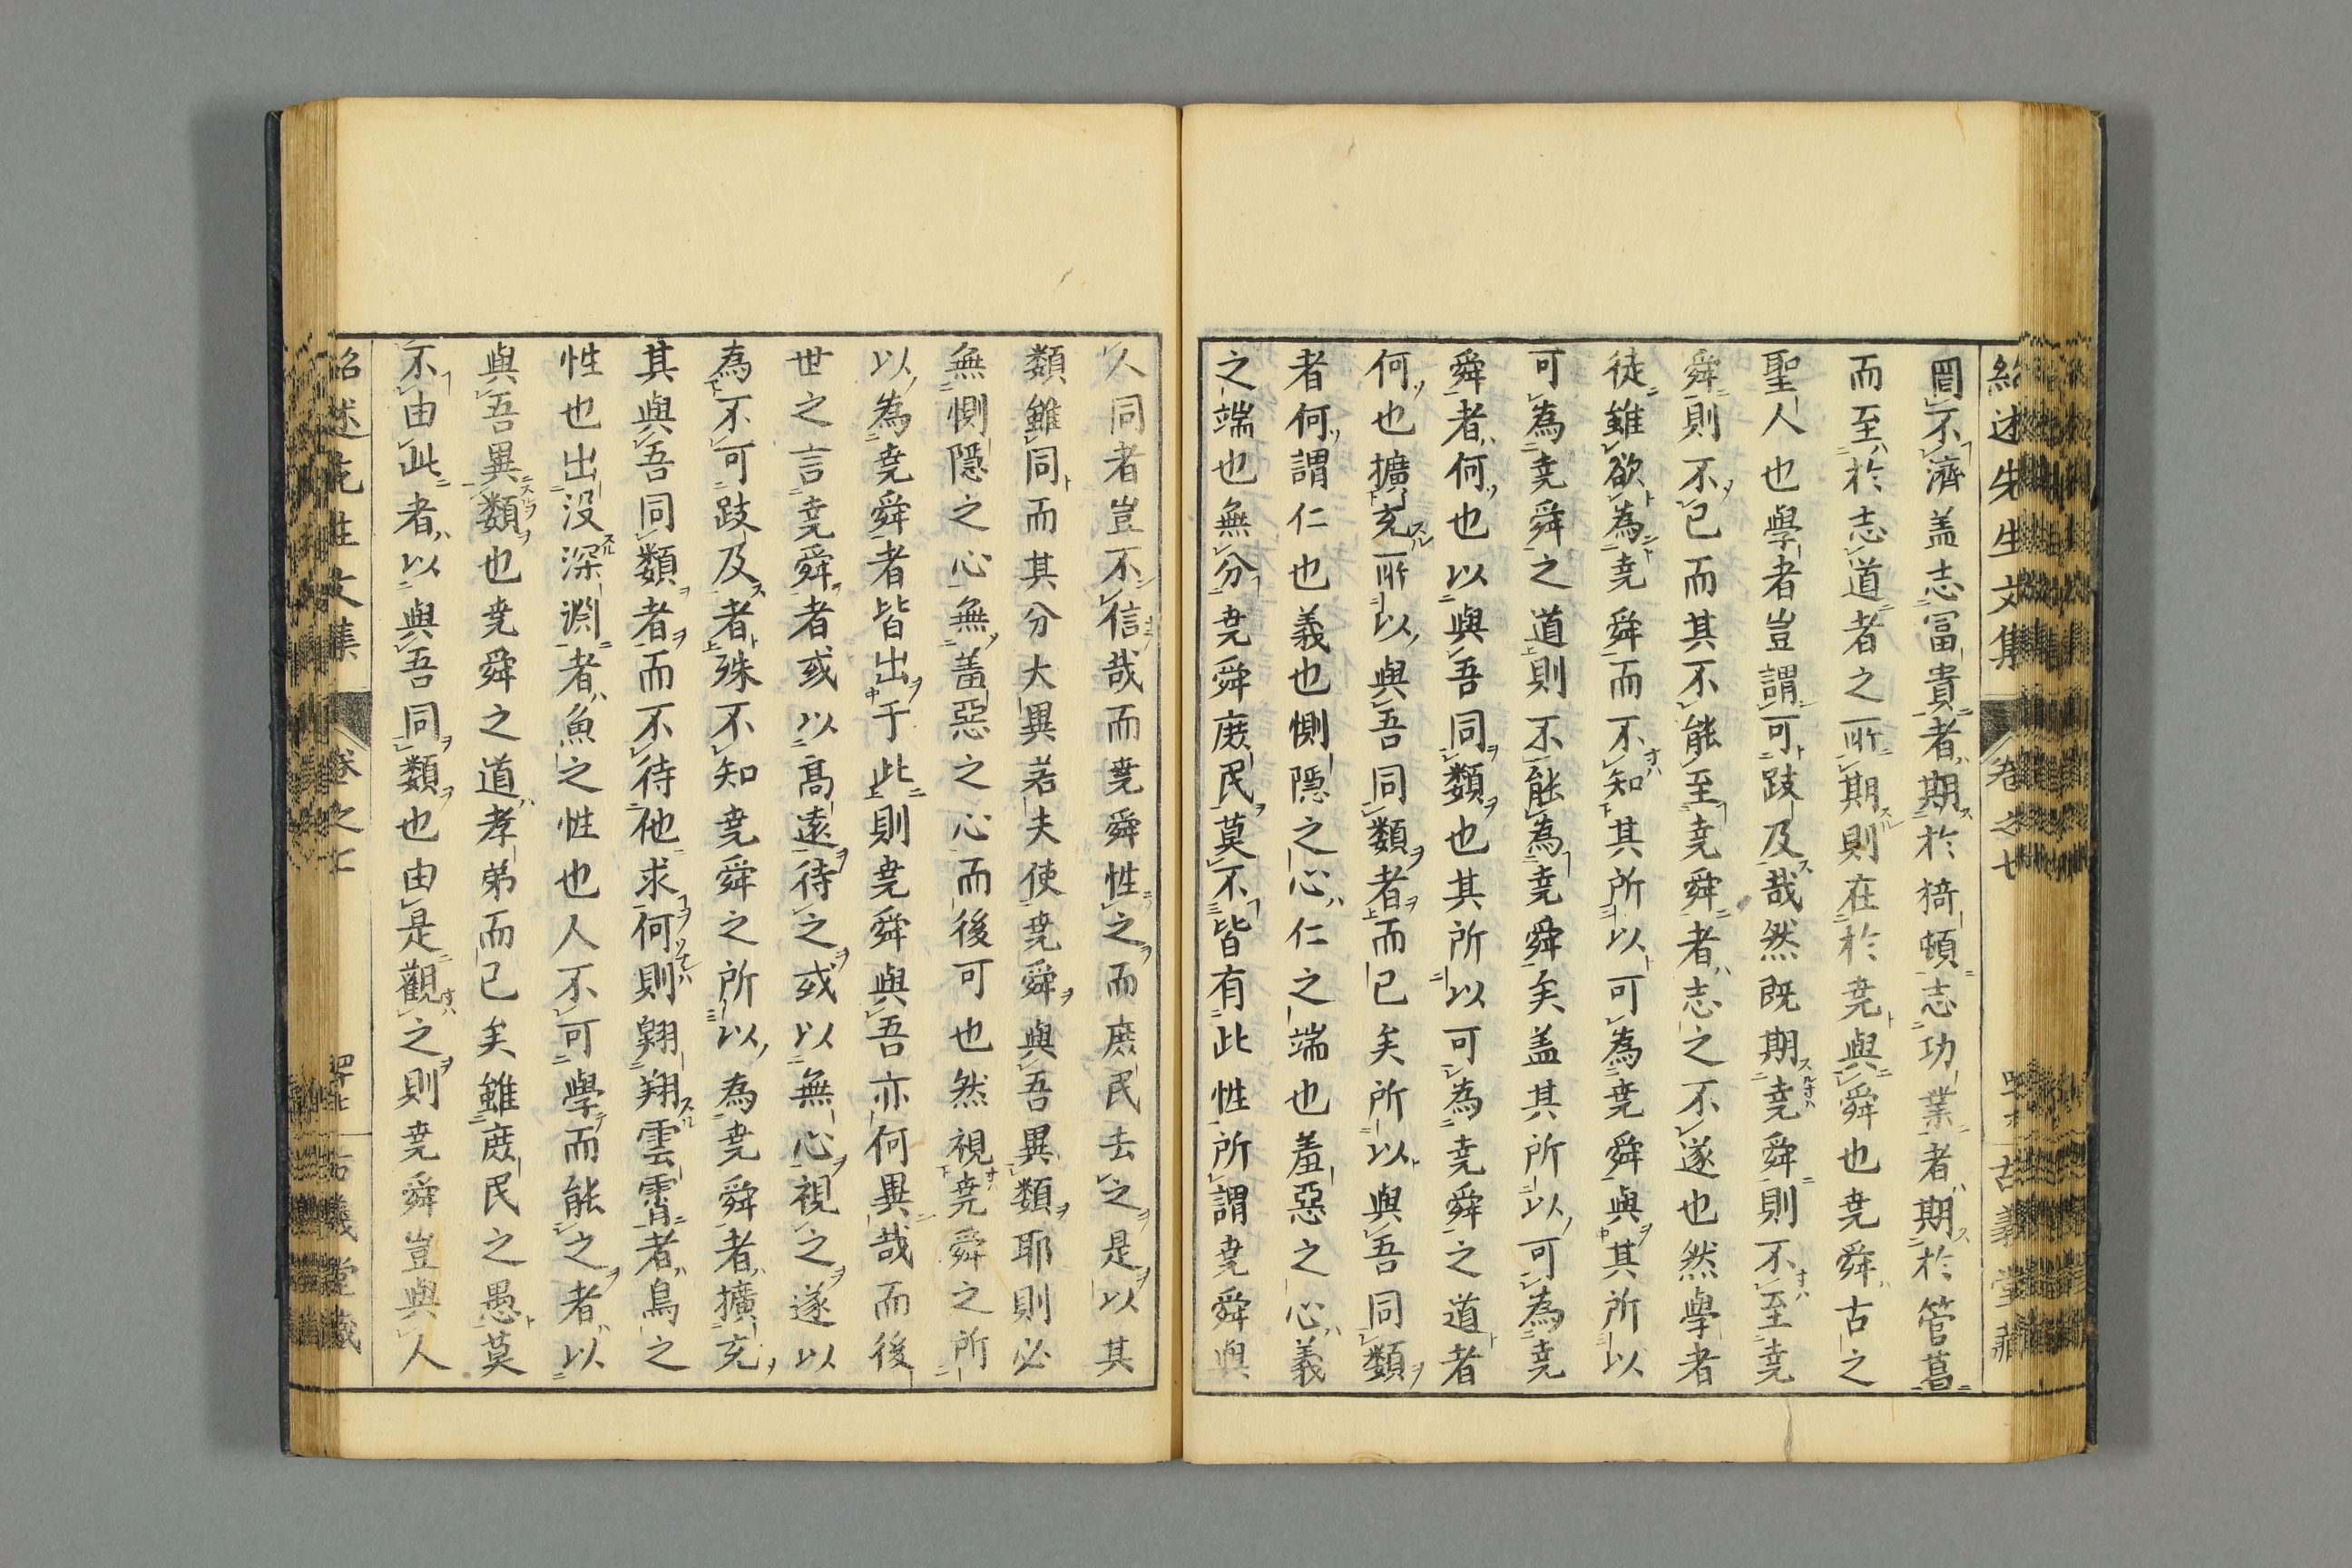 紹述先生文集 卷之七 古義堂藏
罔不濟盖志冨貴者期於猗頓志功業者期於管葛
而至於志道者之所期則在於尭與舜也尭舜古之
聖人也學者豈謂可跂及哉然既期尭舜則不至尭
舜則不已而其不能至尭舜者志之不遂也然學者
徒雖欲為尭舜而不知其所以可為尭舜與其所以
可為尭舜之道則不能為尭舜矣盖其所以可為尭
舜者何也以與吾同類也其所以可為尭舜之道者
何也擴充所以與吾同類者而已矣所以與吾同類
者何謂仁也義也惻隠之心仁之端也羞惡之心義
之端也無分尭舜庶民莫不皆有此性所謂尭舜與
人同者豈不信哉而尭舜性之而庶民去之是以其
類雖同而其分大異若夫使尭舜與吾異類耶則必
無惻隠之心無羞惡之心而後可也然視尭舜之所
以為尭舜者皆出于此則尭舜與吾亦何異哉而後
世之言尭舜者或以髙遠待之或以無心視之遂以
為不可跂及者殊不知尭舜之所以為尭舜者擴充
其與吾同類者而不待他求何則翺翔雲霄者鳥之
性也出没深淵者魚之性也人不可學而能之者以
與吾異類也尭舜之道孝弟而已矣雖庶民之愚莫
不由此者以與吾同類也由是觀之則尭舜豈與人
紹述先生文集 卷之七 古義堂藏